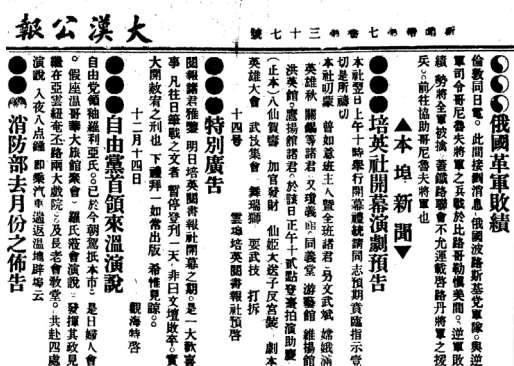 大漢公報
●●●俄國革軍敗績
倫敦同日電。此間接劃消息。俄國波路斯基党軍隊。與逆
軍司令哥尼魯夫將軍之兵戰于比路哥勒慎美間。逆軍敗
績。勢將全軍被擒。蓋鐵路聯會不允運載啓路丹將軍之援
兵。前往協助哥尼魯夫將軍也
▲本埠新聞▼
●●●培英社開幕演劇預告
本社翌日上午十時舉行開幕禮統請同志預期賁臨指示壹
切是所禱切
本社叨蒙 曾如意班主人暨全班諸君。男文武斌 嫦娥滿
英雄秋 關鑑等諸君。又瓊義 同義堂 游藝館 維揚館
洪英館。鷹揚館諸君。於該日正午十弍點登臺拍演助慶
(正本)八仙賀壽 加官發財 仙姬大送子反宮裝。劇本
英雄大會 武技集會 舞瑞獅 耍武技 打拆
十四號 雲埠培英閱書報社預啓
●●●特別廣告
閱報諸君雅鑒 明日培英閱書報社開幕之期。是一大歡喜
事 凡往日筆戰之文者 暫停登刋一天。非曰文壇敗卒。實
大開赦宥之刑也 下禮拜一如常出版 希惟見諒。
十二月十四日 觀海特啓
●●●自由黨首領來溫演說
自由党領袖羅利亞氏。已於今朝駕抵本市。是日婦人會
。假座溫哥華大旅館聚會 羅氏蒞會演說。發揮其政見
繼在亞雲紐奄丕路兩大戲院。及長老會教堂。共赴四處
演說 入夜八點鐘 即乘汽車遄返溫地辟埠云
●●●消防部去月份之佈告